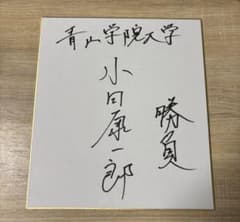 青山学院大学
小田康一郎
勝負